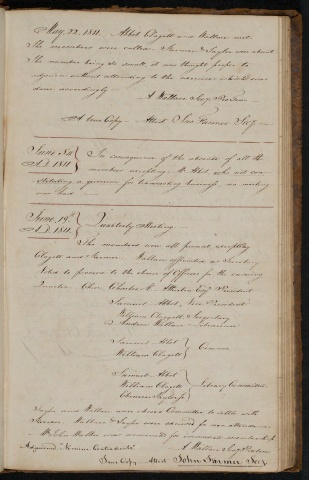 May, 22. 1811. Abbot Clagett and Wallace met.
The members were called. Farmer & Taylor were absent
The number being so small, it was thought proper to
adjourn without attending to the exercises which was
done accordingly
A Wallace Secy Protem
A true Copy Attest Jno Farmer Secy
June 5th
A.D. 1811.
In consequence of the absence of all the
members excepting Mr Abbot, who not con-
stituting a quorum for transacting business, no meeting
was had
June 19th
A.D. 1811.
Quarterly Meeting.
The members were all present excepting
Clagett and Farmer. Wallace officiated as Secretary
Voted to proceed to the choice of Officers for the ensuing
Quarter. Chose Charles H. Atherton Esq President
Samuel Abbot, Vice President
William Claggett Secretary
& Andrew Wallace Librarian
Samuel Abbot
William Clagett
Censors
Samuel Abbot
William Clagett
Ebenezer Taylor Jr
Library Committee
Taylor and Wallace were chosen Committee to settle with
Farmer. Wallace & Taylor were excused for non attendance
Mr John Wallace was nominated for immediate membership
A Wallace Secy Protem
Adjourned "Nemine Contradicente"
True Copy Attest John Farmer Secy